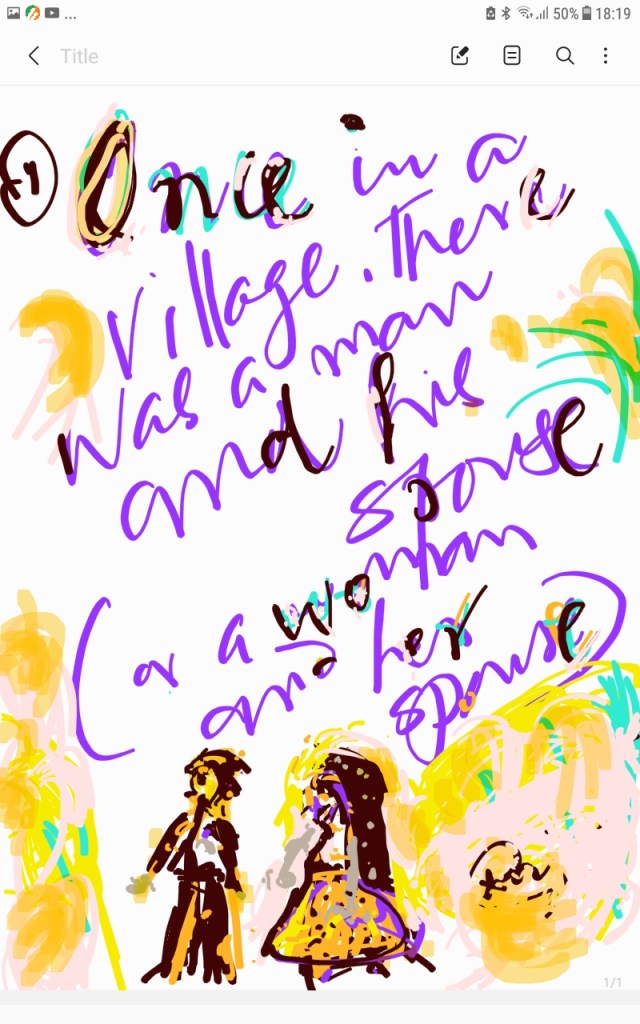 50% 18:19
Title
Once in a
village. There
was a man
and his
spouse
(or a woman
and her
spouse)
1/1